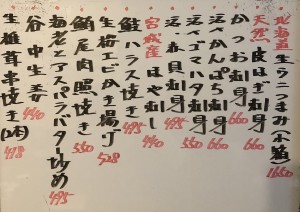 北海道 生ウニつまみ(小箱) 1650
天然 皮はぎ刺身 660
かつお刺身 660
活〆かんぱち刺身 660
活〆ゴマハタ刺身 550
活〆赤貝刺身 495
宮城産 ほや刺し 440
鮭ハラス焼き 495
生桜エビかき揚げ 528
鮪尾肉照焼き 550
海老とアスパラバター炒め 495
谷中生姜 440
生椎茸串焼き(2本) 418